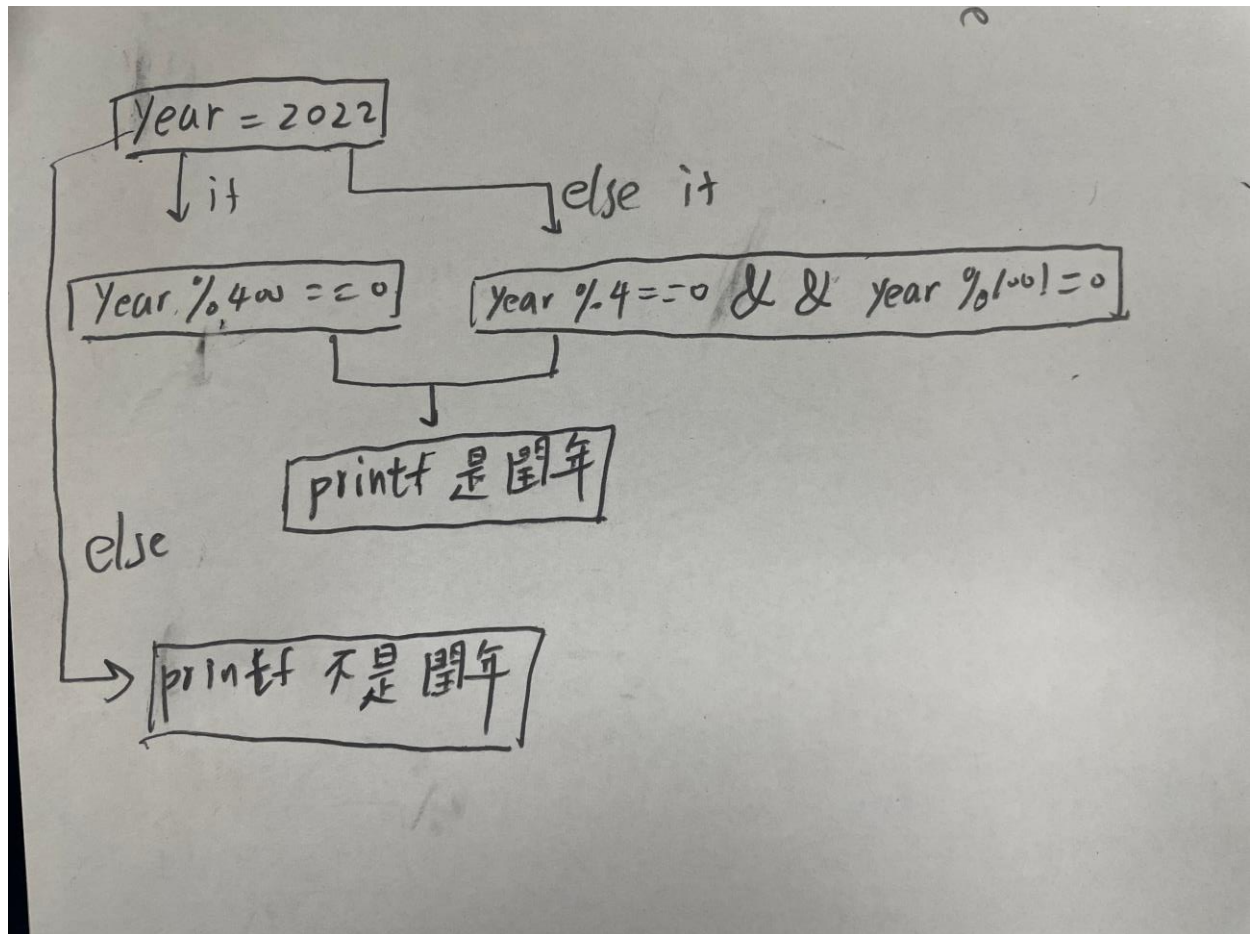 year = 2022
if
else if
year % 400 == 0
year % 4 == 0 && year % 100 != 0
printf 是閏年
else
printf 不是閏年